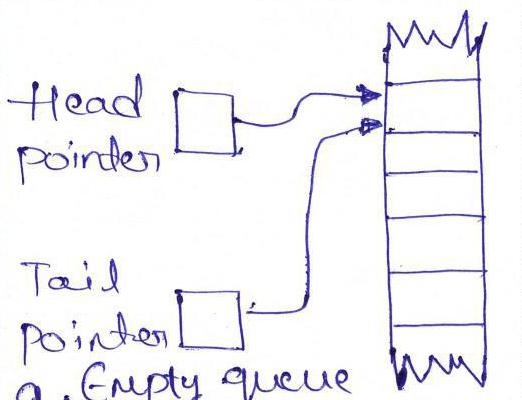 Head
pointer
Tail
pointer
a. Empty queue